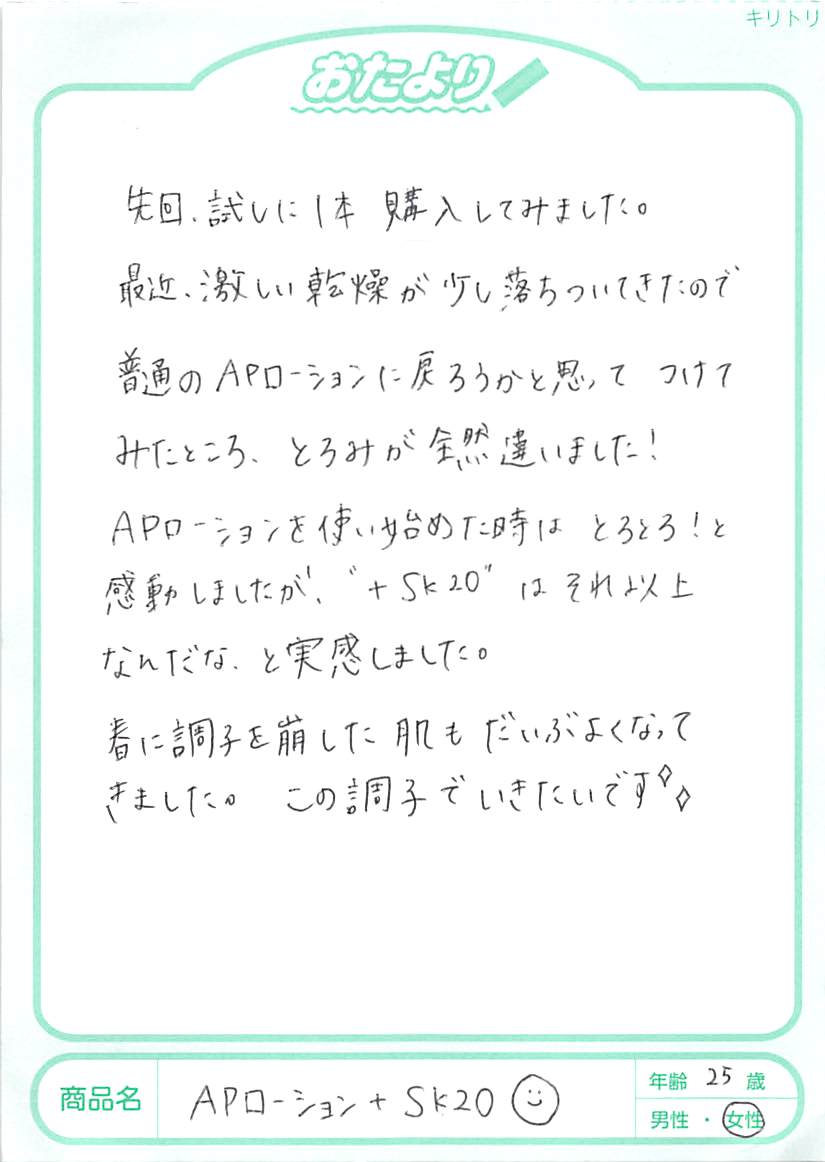 キリトリ
おたより
先回、試しに1本 購入してみました。
最近、激しい乾燥が少し落ちついてきたので
普通のAPローションに戻ろうかと思って つけて
みたところ、とろみが全然違いました!
APローションを使い始めた時は とろとろ!と
感動しましたが、"+SK20" はそれ以上
なんだな、と実感しました。
春に調子を崩した肌もだいぶよくなって
きました。 この調子でいきたいです
商品名 APローション+SK20
年齢 25 歳
男性・女性